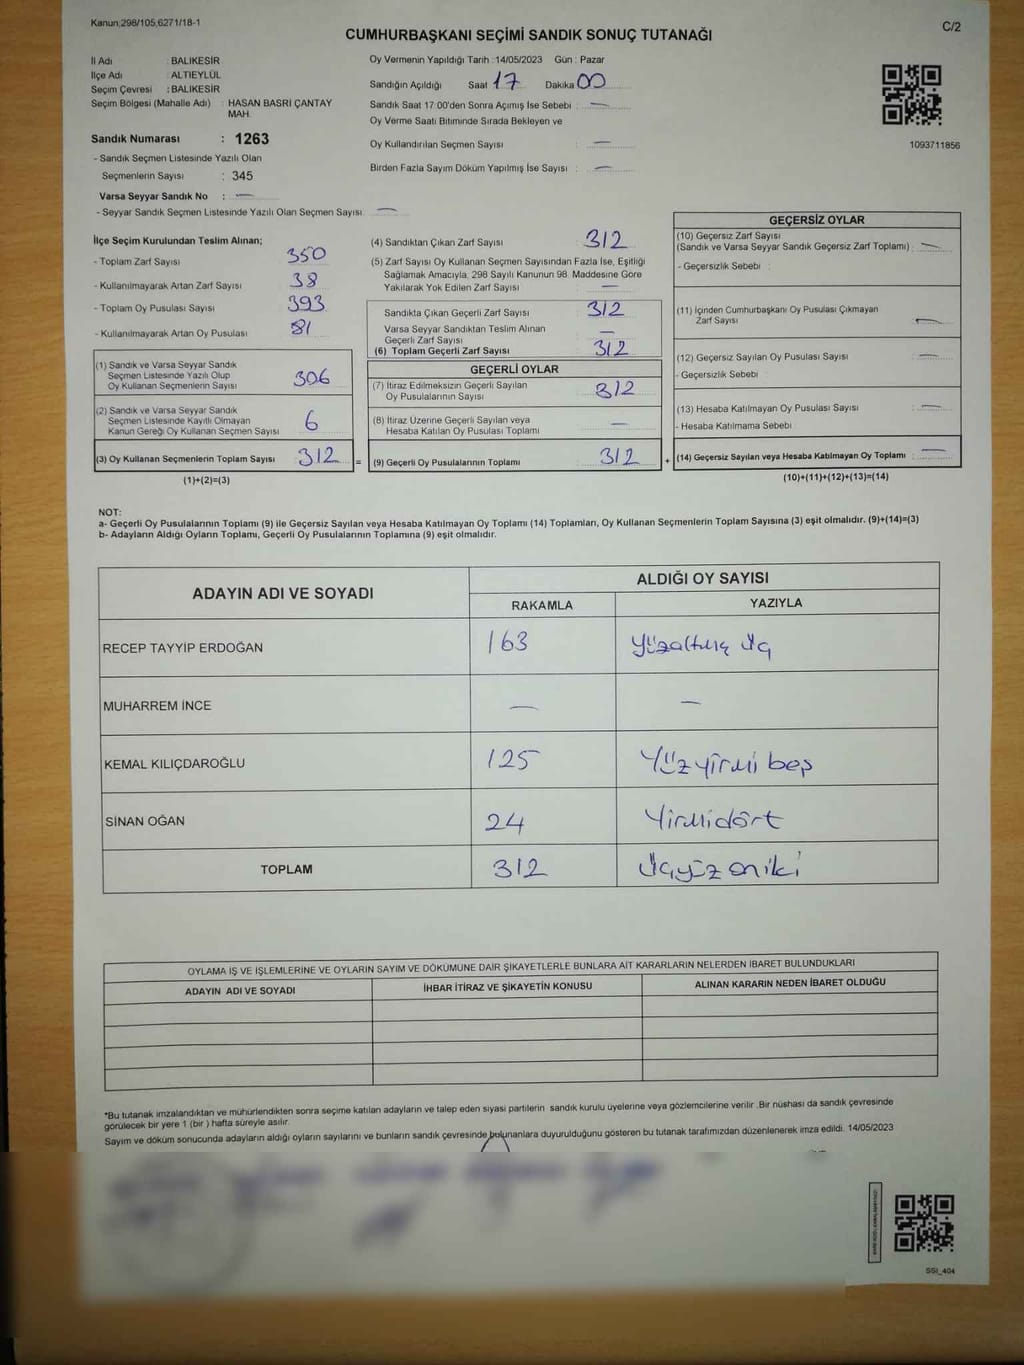 Kanun:298/105,6271/18-1
C/2
CUMHURBAŞKANI SEÇİMİ SANDIK SONUÇ TUTANAĞI
İl Adı : BALIKESİR
İlçe Adı : ALTIEYLÜL
Seçim Çevresi : BALIKESİR
Seçim Bölgesi (Mahalle Adı) : HASAN BASRİ ÇANTAY
MAH.
Sandık Numarası : 1263
- Sandık Seçmen Listesinde Yazılı Olan
Seçmenlerin Sayısı : 345
Varsa Seyyar Sandık No : —
- Seyyar Sandık Seçmen Listesinde Yazılı Olan Seçmen Sayısı : —
Oy Vermenin Yapıldığı Tarih : 14/05/2023 Gün : Pazar
Sandığın Açıldığı Saat 17 Dakika 00
Sandık Saat 17:00'den Sonra Açımış İse Sebebi : —
Oy Verme Saati Bitiminde Sırada Bekleyen ve
Oy Kullandırılan Seçmen Sayısı : —
Birden Fazla Sayım Döküm Yapılmış İse Sayısı : —
1093711856
İlçe Seçim Kurulundan Teslim Alınan;
- Toplam Zarf Sayısı : 350
- Kullanılmayarak Artan Zarf Sayısı : 38
- Toplam Oy Pusulası Sayısı : 393
- Kullanılmayarak Artan Oy Pusulası : 81
(1) Sandık ve Varsa Seyyar Sandık
Seçmen Listesinde Yazılı Olup
Oy Kullanan Seçmenlerin Sayısı : 306
(2) Sandık ve Varsa Seyyar Sandık
Seçmen Listesinde Kayıtlı Olmayan
Kanun Gereği Oy Kullanan Seçmen Sayısı : 6
(3) Oy Kullanan Seçmenlerin Toplam Sayısı : 312 =
(1)+(2)=(3)
(4) Sandıktan Çıkan Zarf Sayısı : 312
(5) Zarf Sayısı Oy Kullanan Seçmen Sayısından Fazla İse, Eşitliği
Sağlamak Amacıyla, 298 Sayılı Kanunun 98. Maddesine Göre
Yakılarak Yok Edilen Zarf Sayısı : —
Sandıkta Çıkan Geçerli Zarf Sayısı : 312
Varsa Seyyar Sandıktan Teslim Alınan
Geçerli Zarf Sayısı : —
(6) Toplam Geçerli Zarf Sayısı : 312
GEÇERLİ OYLAR
(7) İtiraz Edilmeksizin Geçerli Sayılan
Oy Pusulalarının Sayısı : 312
(8) İtiraz Üzerine Geçerli Sayılan veya
Hesaba Katılan Oy Pusulası Toplamı : —
(9) Geçerli Oy Pusulalarının Toplamı : 312 +
GEÇERSİZ OYLAR
(10) Geçersiz Zarf Sayısı
(Sandık ve Varsa Seyyar Sandık Geçersiz Zarf Toplamı) : —
- Geçersizlik Sebebi :
(11) İçinden Cumhurbaşkanı Oy Pusulası Çıkmayan
Zarf Sayısı : —
(12) Geçersiz Sayılan Oy Pusulası Sayısı : —
- Geçersizlik Sebebi :
(13) Hesaba Katılmayan Oy Pusulası Sayısı : —
- Hesaba Katılmama Sebebi :
(14) Geçersiz Sayılan veya Hesaba Katılmayan Oy Toplamı : —
(10)+(11)+(12)+(13)=(14)
NOT:
a- Geçerli Oy Pusulalarının Toplamı (9) ile Geçersiz Sayılan veya Hesaba Katılmayan Oy Toplamı (14) Toplamları, Oy Kullanan Seçmenlerin Toplam Sayısına (3) eşit olmalıdır. (9)+(14)=(3)
b- Adayların Aldığı Oyların Toplamı, Geçerli Oy Pusulalarının Toplamına (9) eşit olmalıdır.
ADAYIN ADI VE SOYADI
ALDIĞI OY SAYISI
RAKAMLA YAZIYLA
RECEP TAYYİP ERDOĞAN 163 Yüzaltmış Üç
MUHARREM İNCE — —
KEMAL KILIÇDAROĞLU 125 Yüzyirmi beş
SİNAN OĞAN 24 Yirmidört
TOPLAM 312 Üçyüz oniki
OYLAMA İŞ VE İŞLEMLERİNE VE OYLARIN SAYIM VE DÖKÜMÜNE DAİR ŞİKAYETLERLE BUNLARA AİT KARARLARIN NELERDEN İBARET BULUNDUKLARI
ADAYIN ADI VE SOYADI İHBAR İTİRAZ VE ŞİKAYETİN KONUSU ALINAN KARARIN NEDEN İBARET OLDUĞU
*Bu tutanak imzalandıktan ve mühürlendikten sonra seçime katılan adayların ve talep eden siyasi partilerin sandık kurulu üyelerine veya gözlemcilerine verilir .Bir nüshası da sandık çevresinde
görülecek bir yere 1 (bir ) hafta süreyle asılır.
Sayım ve döküm sonucunda adayların aldığı oyların sayılarını ve bunların sandık çevresinde bulunanlara duyurulduğunu gösteren bu tutanak tarafımızdan düzenlenerek imza edildi. 14/05/2023
SSI_404